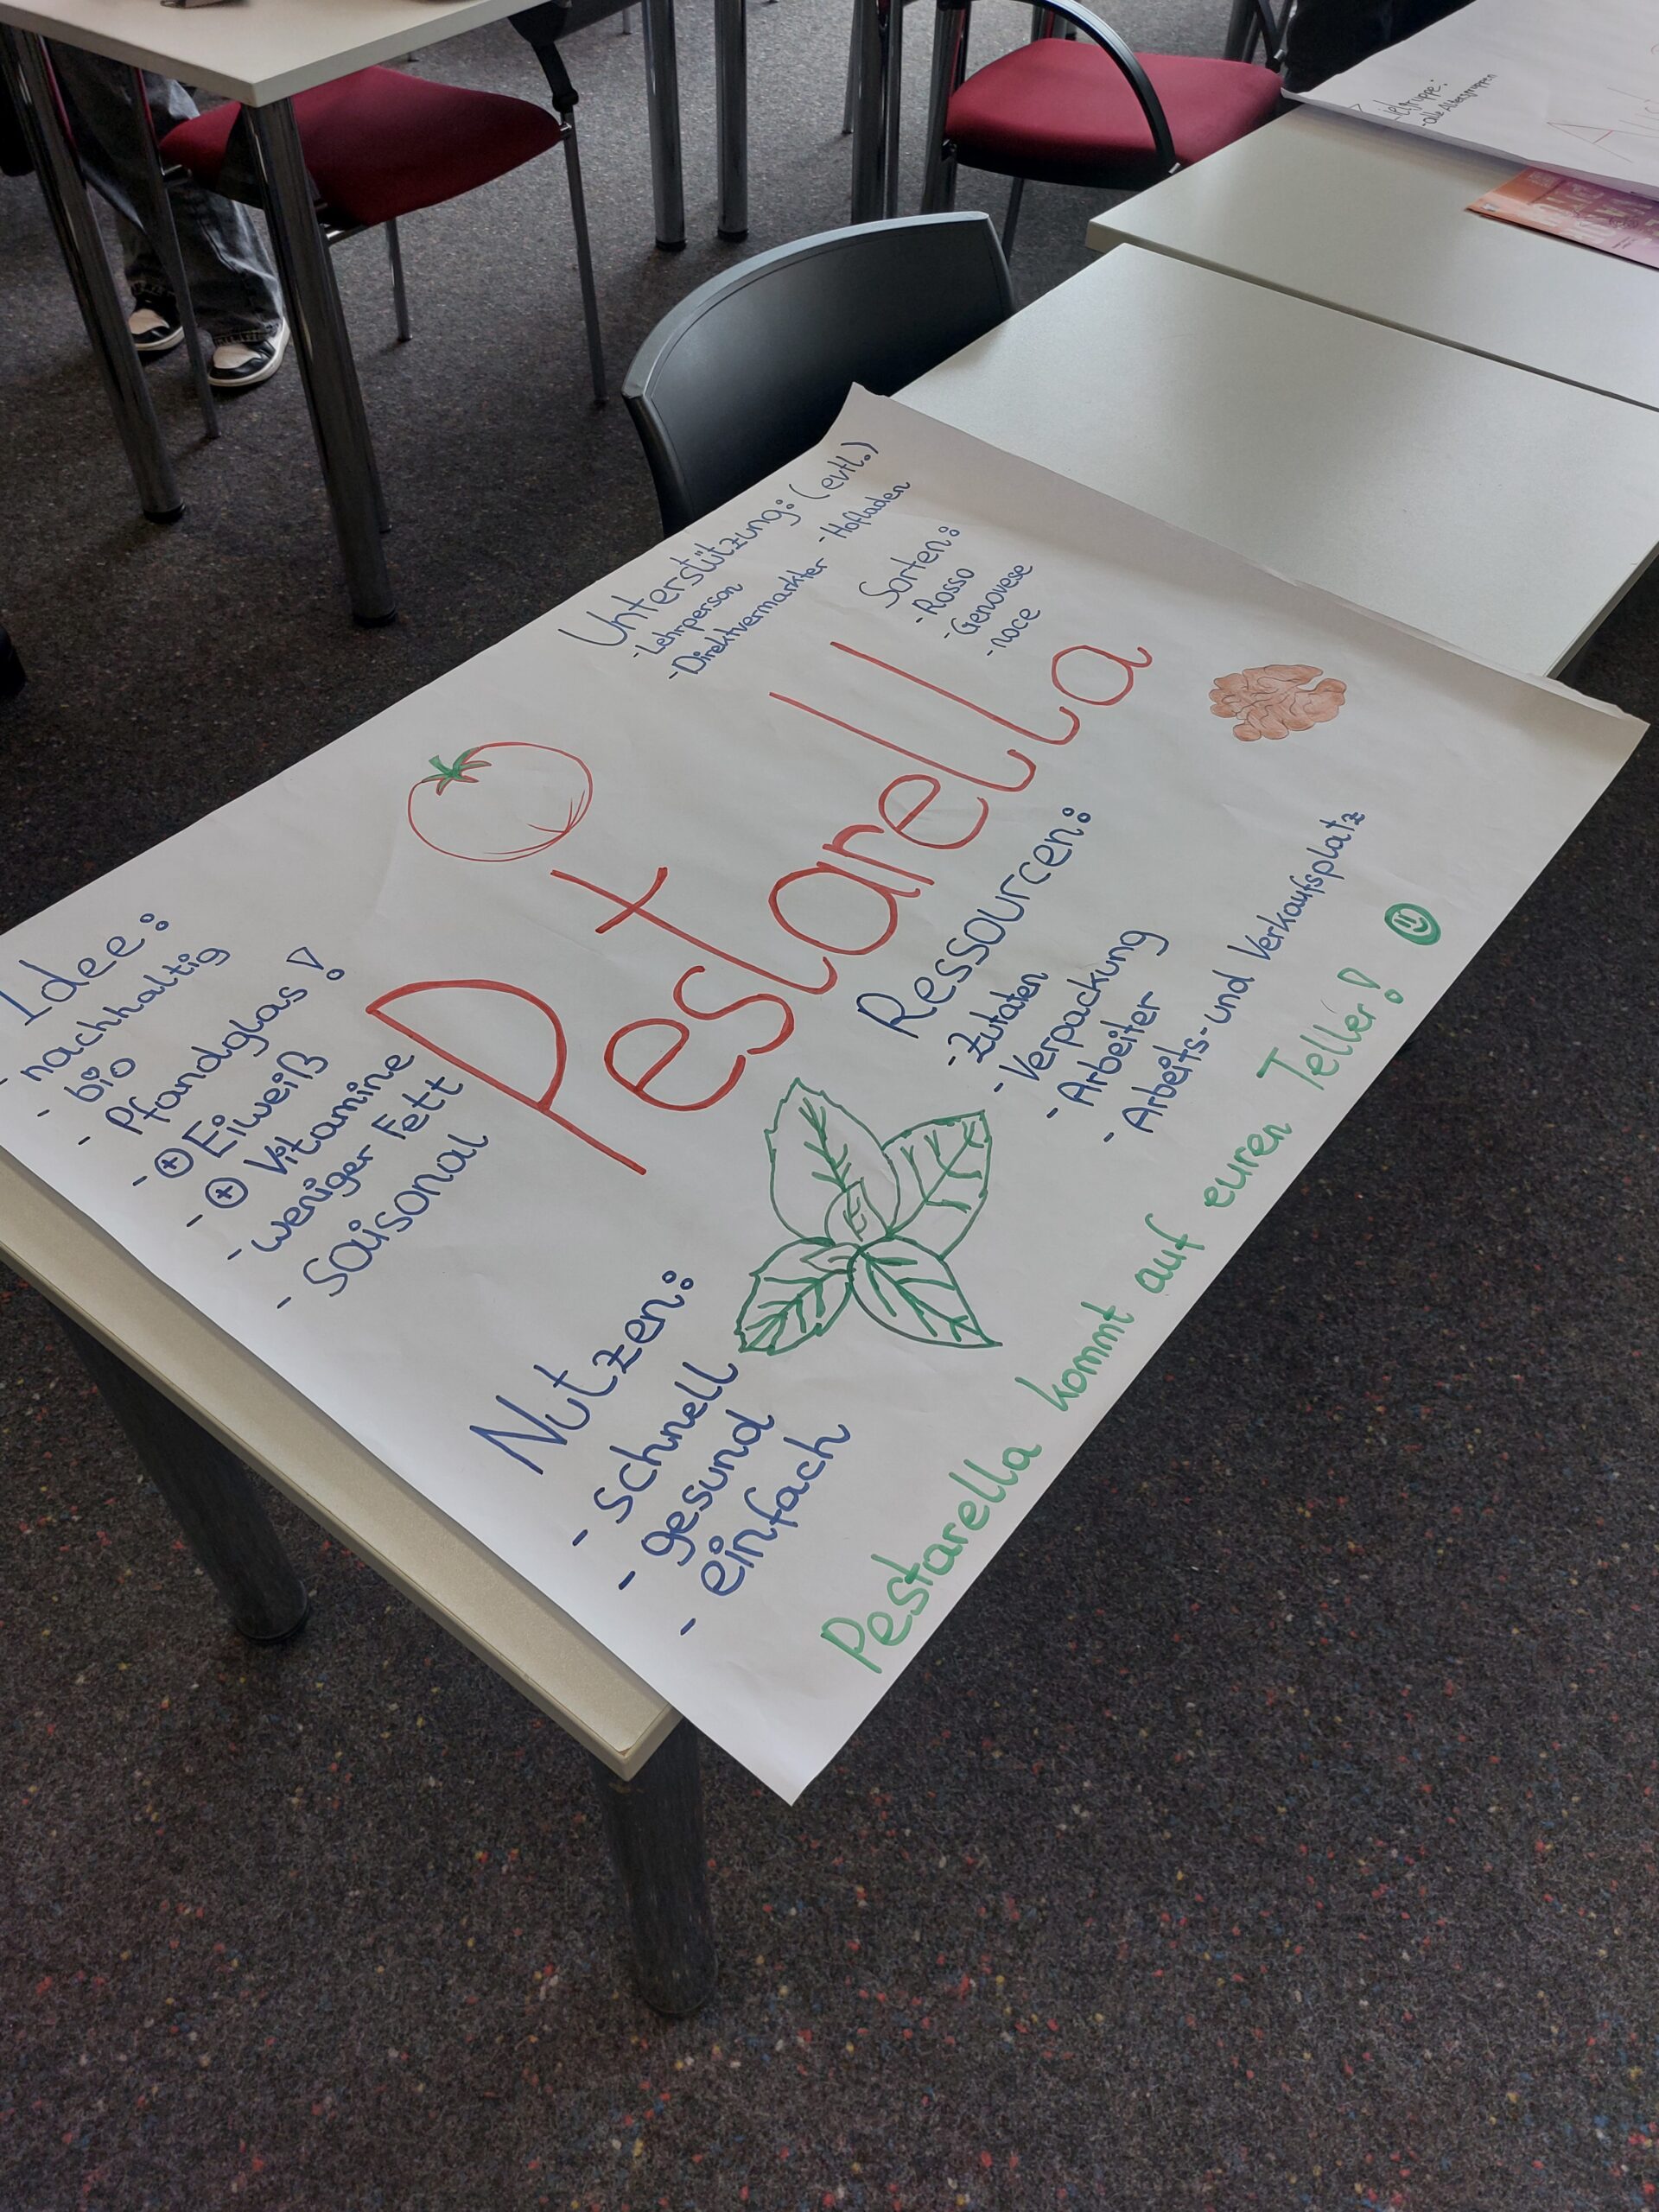 Idee:
- nachhaltig
- bio
- Pfandglas!
- + Eiweiß
- + Vitamine
- weniger Fett
- saisonal
Unterstützung: (evtl.)
- Lehrperson
- Direktvermarkter - Hofladen
Sorten:
- Rosso
- Genovese
- noce
Pestarella
Nutzen:
- schnell
- gesund
- einfach
Ressourcen:
- Zutaten
- Verpackung
- Arbeiter
- Arbeits- und Verkaufsplatz
Pestarella kommt auf euren Teller!
Zielgruppe:
- alle Altersgruppen